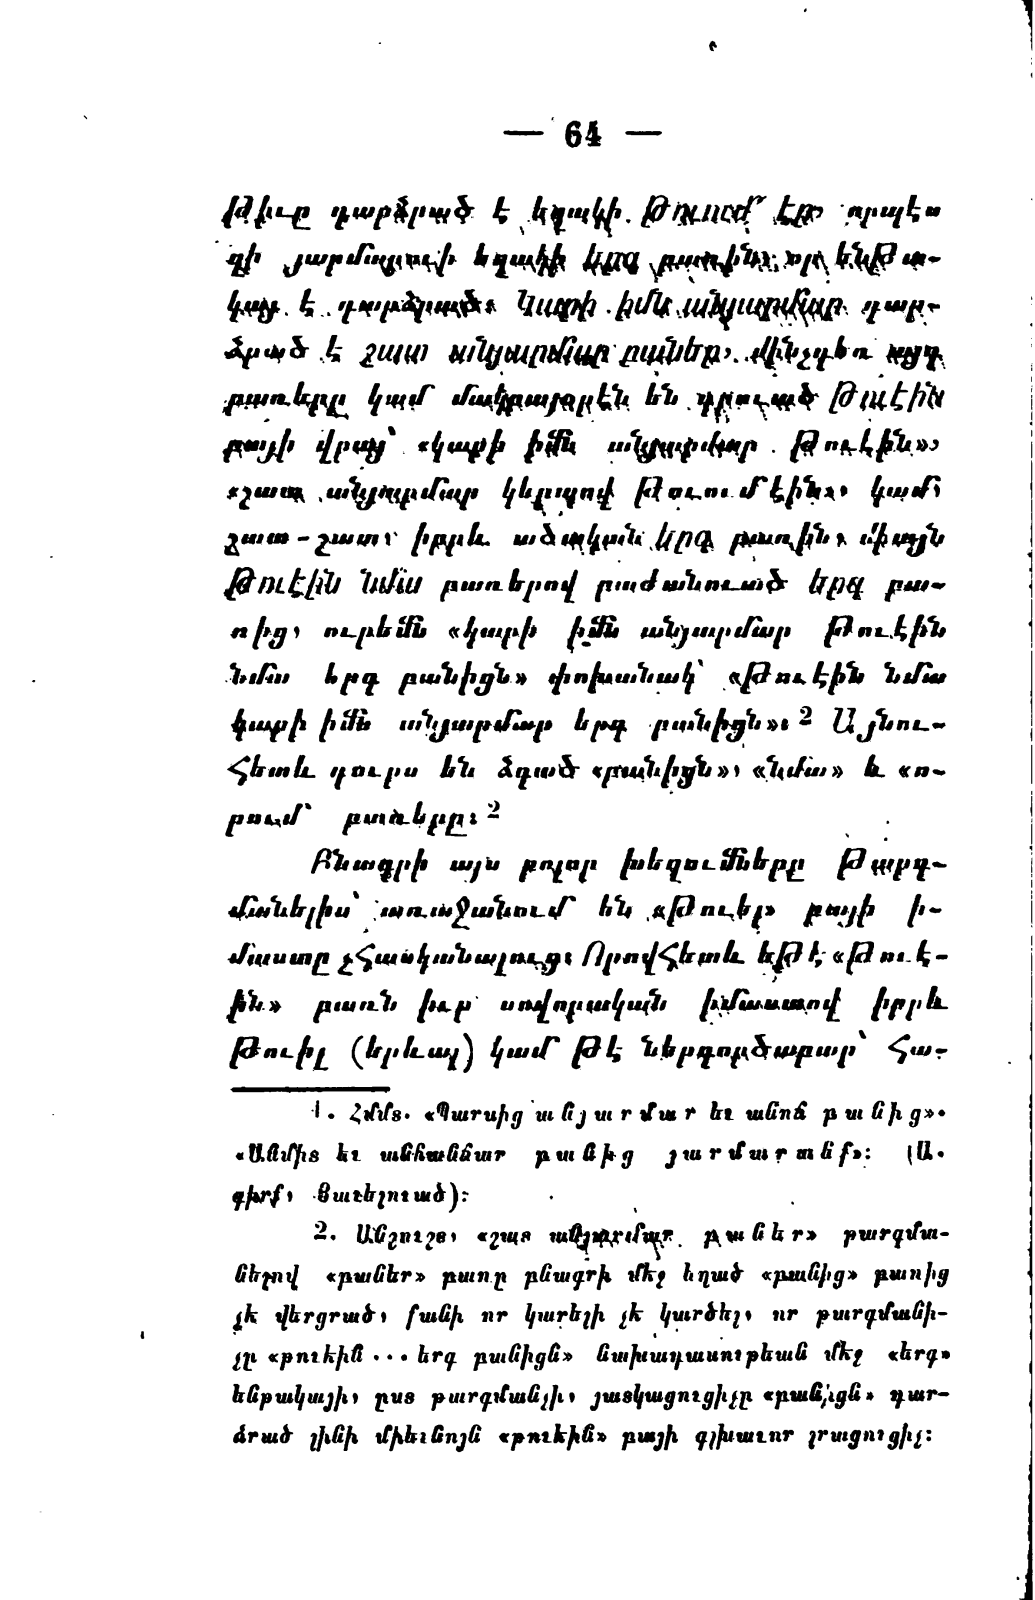 — 64 —
թիւը դարձրած է եզակի. Թուում՝ էր, որպէս
զի յարմարուի եզակի երգ բառին, որ ենթա-
կայ է դարձրած։ Կարի իմն անյարմար դար-
ձրած է շատ անյարմար բաներ, մինչդեռ այդ
բառերը կամ մակբայօրէն են դրուած Թուէին
բայի վրայ՝ «կարի իմն անյարմար Թուէին»,
«շատ անյարմար կերպով Թուում էին», կամ,
շատ-շատ, իբրև ածական երգ բառին, միայն
Թուէին նմա բառերով բաժանուած երգ բա-
ռից, ուրեմն «կարի իմն անյարմար Թուէին
նմա երգ բանիցն» փոխանակ՝ «Թուէին նմա
կարի իմն անյարմար երգ բանիցն»։ 2 Այնու-
հետև դուրս են ձգած «բանիցն», «նմա» և «ո-
րում՝ բառերը։ 2
Բնագրի այս բոլոր խեղումները Թարգ-
մանելիս՝ առաջանում են «Թուել» բայի ի-
մաստը չհասկանալուց։ Որովհետև եթէ «Թուէ-
ին» բառն իւր սովորական իմաստով իբրև
Թուիլ (երևալ) կամ թէ ներգործաբար՝ հա-
1. Հմմտ. «Պարսից անյարմար եւ անոճ բանից».
«Անմիտ եւ անհանճար բանից յարմարանք»։ (Ա.
գիրք, Յաւելուած)։
2. Անշուշտ, «շատ անյարմար բաներ» թարգմա-
նելով «բաներ» բառը բնագրի մէջ եղած «բանից» բառից
չէ վերցրած, քանի որ կարելի չէ կարծել, որ թարգմանի-
չը «թուէին... երգ բանիցն» նախադասութեան մէջ «երգ»
ենթակայի, ըստ թարգմանչի, յատկացուցիչը «բանիցն» դար-
ձրած լինի միեւնոյն «թուէին» բայի գլխաւոր լրացուցիչ։